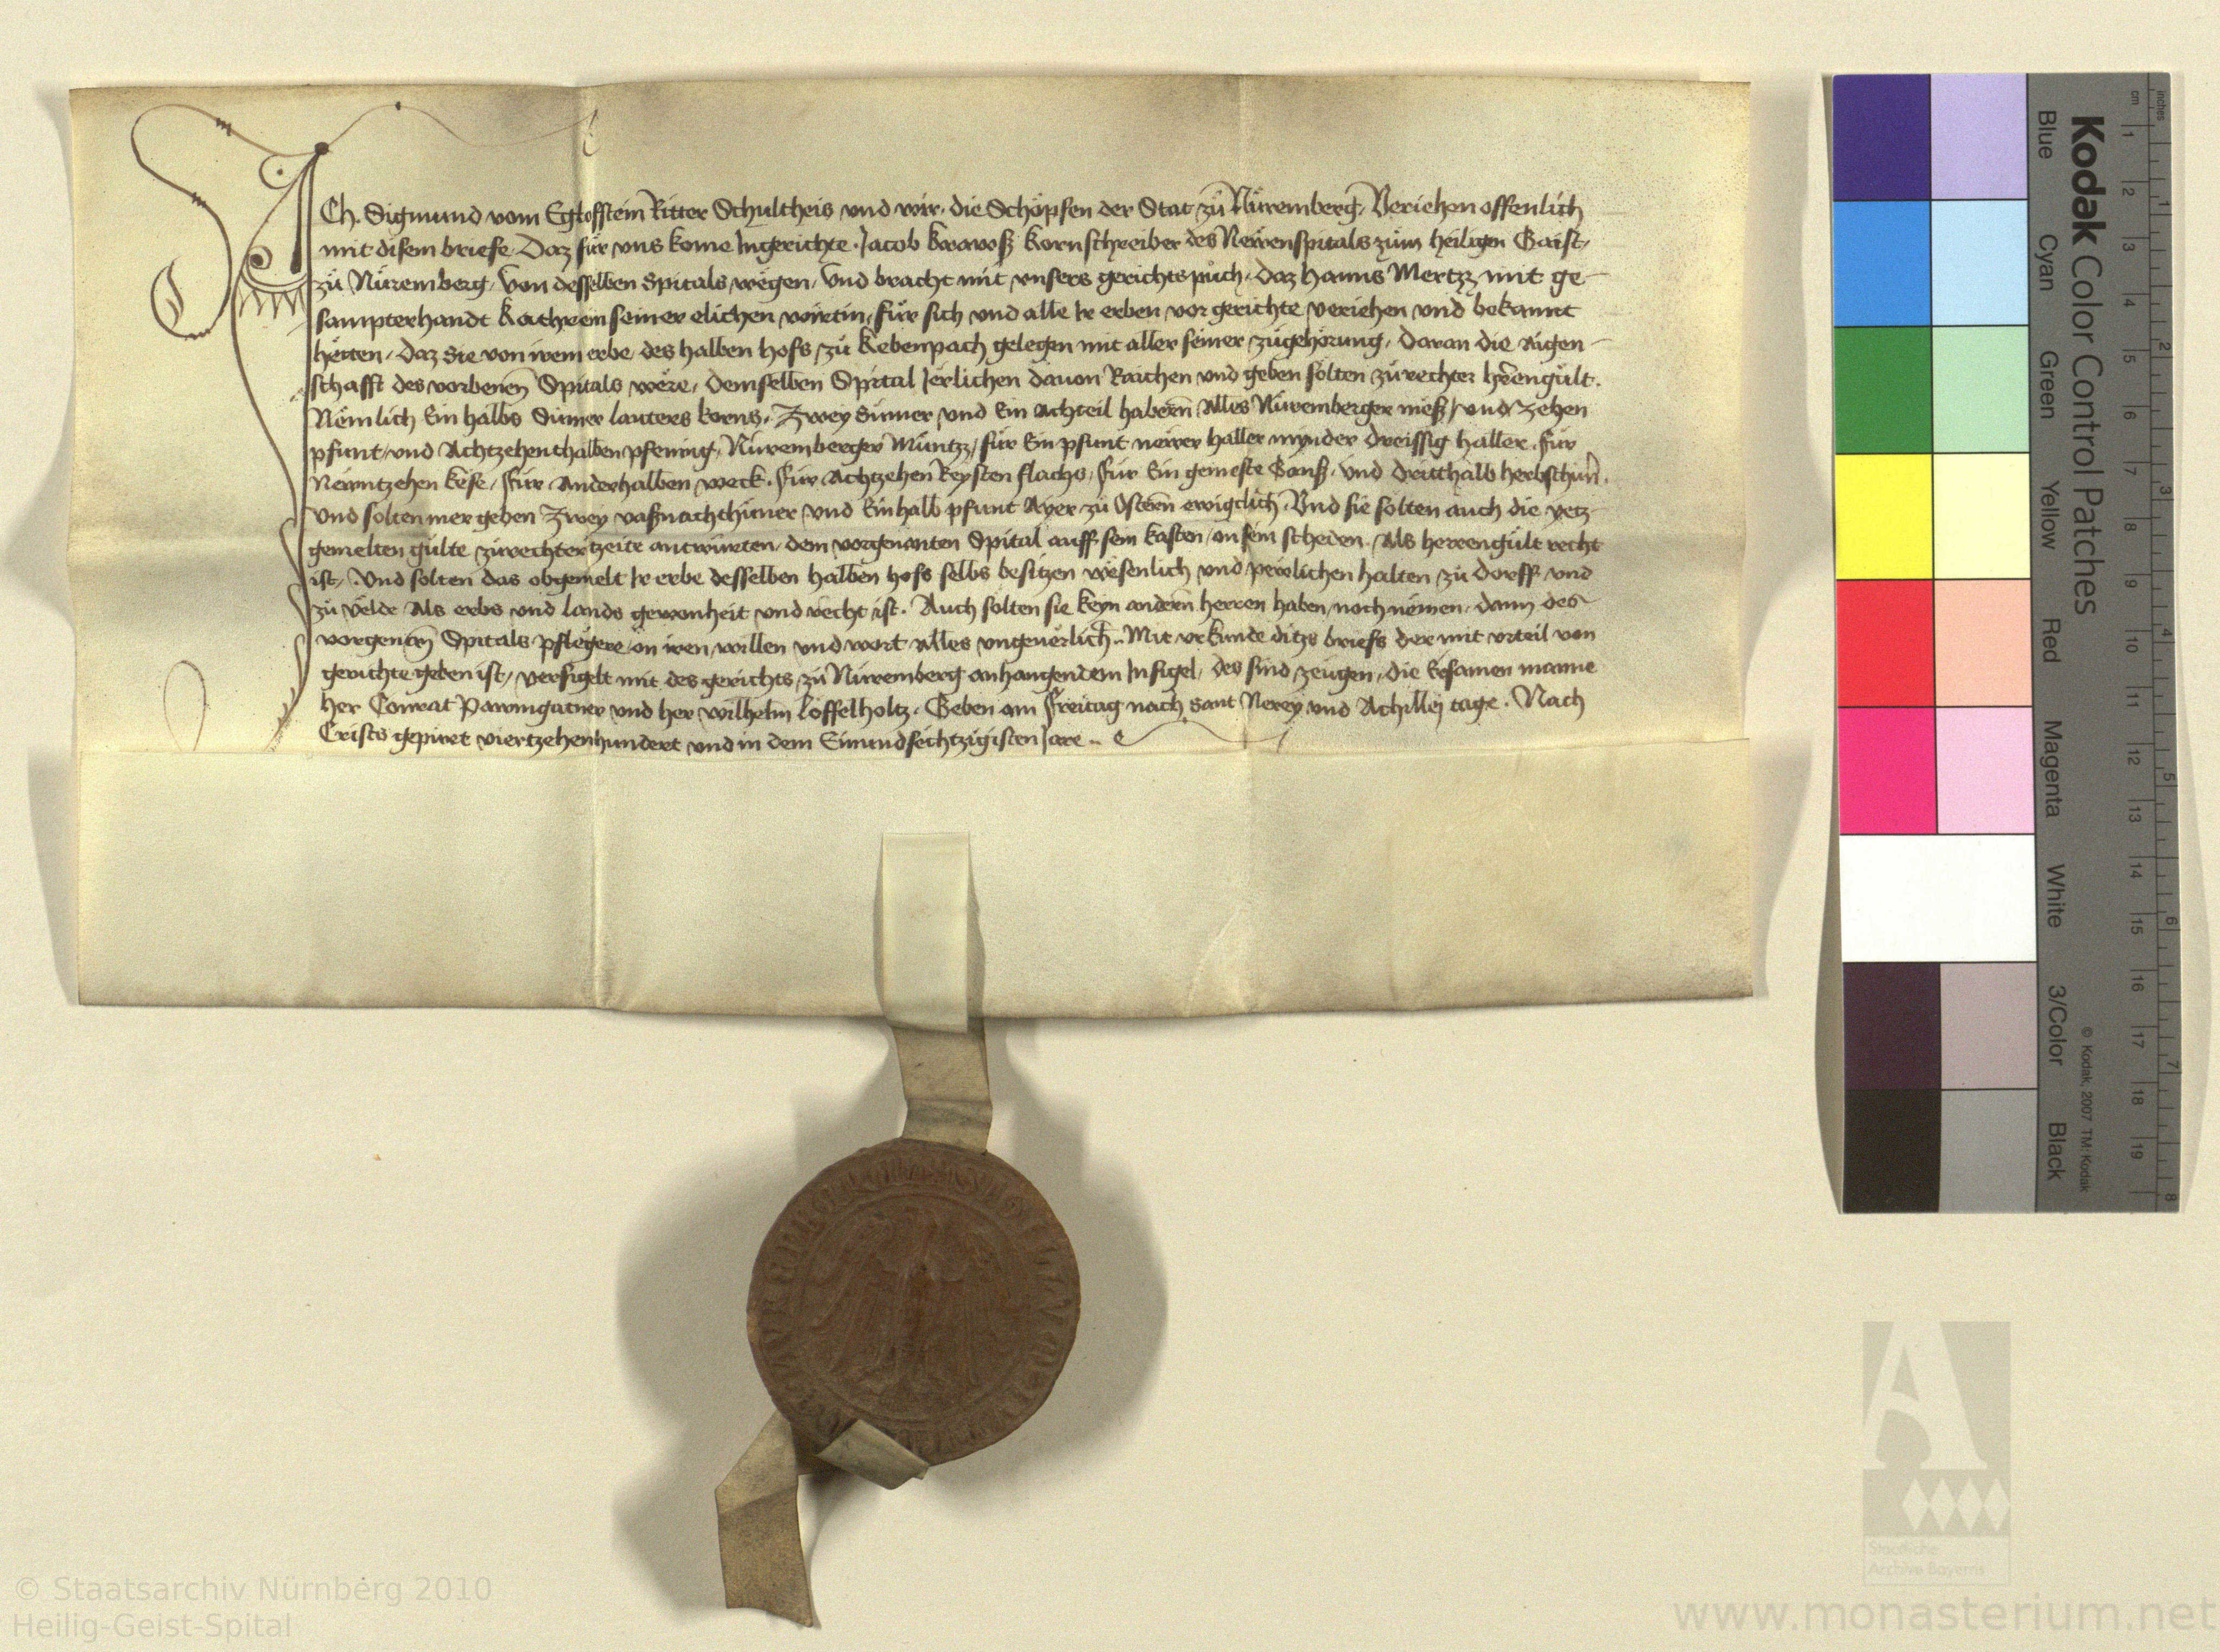 ICh. Sigmund vom Eglofstein Ritter Schultheis vnd wir. die Schöpfen der Stat zů Nüremberg, Veriehen offenlich
mit disem briefe. Daz für vns kome Ingerichte. Jacob Kornschreiber des Newenspitals zům heiligen Gaist,
zů Nüremberg, von desselben Spitals wegen, vnd bracht mit vnsers gerichts půch. daz Hanns Mertz mit ge-
sampterhandt Kathrein seiner elichen wirtin, für sich vnd alle Ir erben vor gerichte veriehen vnd bekannt
hetten. daz Sie von irem erbe, des halben hofs zů Kebenpach gelegen mit aller seiner zügehörung, daran die aigen-
schafft des vorbenen̄ Spitals were, demselben Spital Jerlichen dauon Raichen vnd geben solten zů rechter hr̄engült.
Nemlich Ein halbs Sümer lauters korns, Zwey Sümer vnd Ein achteil habern̄ alles Nüremberger meß, vnd zehen
pfunt vnd Achtzehenthalben pfenning, Nüremberger Müntz, für Ein pfunt newer haller mynder dreissig haller. für
Newntzehen kese, für Anderhalben weck. für Achtzehen Reysten flachs, für Ein gemeste Ganß, vnd dritthalb herbsthün̄.
vnd solten mer geben Zwey vaßnachthüner vnd Einhalb pfunt Ayer zů Ostern̄ ewigclich, Vnd sie solten auch die yetz-
gemelten gülte zürechter zeite antwürten, dem vorgenanten Spital auff sein kasten, on sein scheden. Als herrengült recht
ist, Vnd solten das obgemelt Ir erbe desselben halben hofs selbs besitzen wesenlich vnd pewlichen halten zů dorff vnd
zů velde als erbs vnd lands gewonheit vnd recht ist. Auch solten sie keyn andern̄ herren haben, noch nemen, dann des
vorgentn̄ Spitals pflegere, on iren willen vnd wort alles vngeuerlich.. Mit vrkunde ditzs briefs der mit vrteil von
gerichte geben ist, versigelt mit des gerichts zů Nüremberg anhangendem Insigel, des sind zeugen, die Ersamen manne
her Conrat Pawmgatner vnd her Wilhelm Löffelholtz. Geben am Freitag nach sant Nerey vnd Achillej tage. Nach
Crists gepurt viertzehenhundert vnd in dem Einundsechtzigisten Jare..
Kodak Color Control Patches
Blue Cyan Green Yellow Red Magenta White 3/Color Black
© Kodak, 2007 TM: Kodak
cm 1 2 3 4 5 6 7 8 9 10 11 12 13 14 15 16 17 18 19
inches 1 2 3 4 5 6 7 8
Staatliche
Archive Bayerns
© Staatsarchiv Nürnberg 2010
Heilig-Geist-Spital
www.monasterium.net